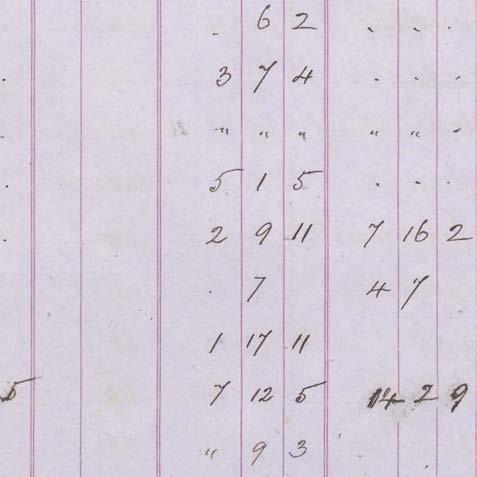 . 6 2 . . .
. 3 7 4 . . .
. " " " " " .
. 5 1 5 . . .
. 2 9 11 7 16 2
. 7 4 7
1 17 11
5 7 12 5 14 2 9
" 9 3